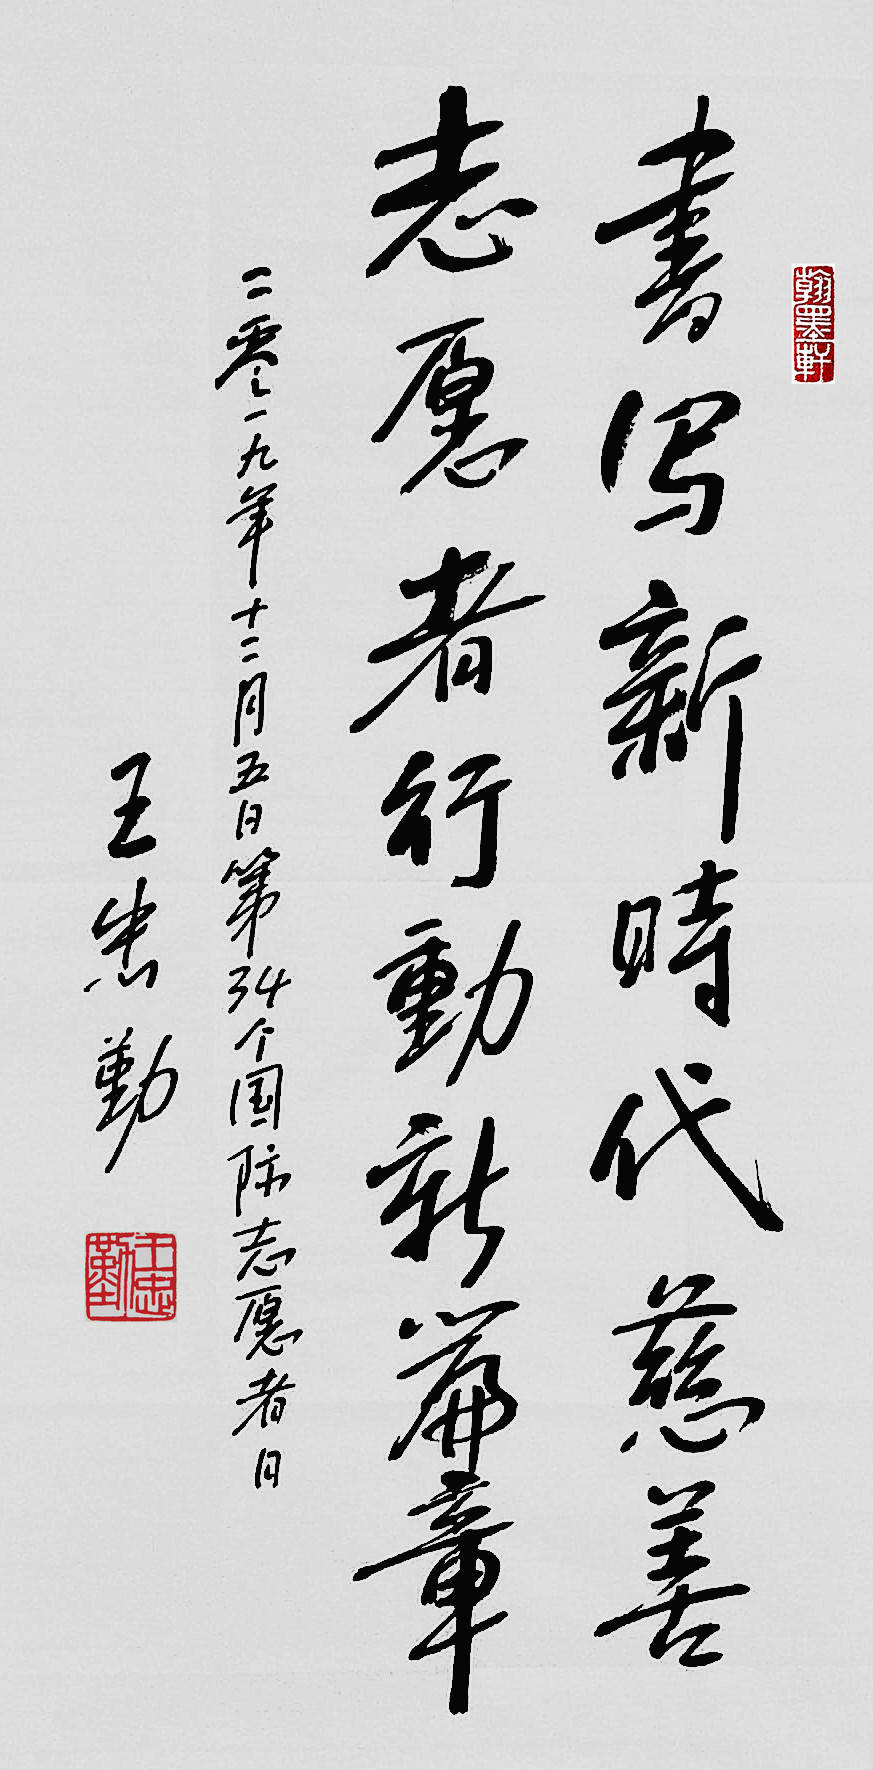 翰墨軒
書写新時代慈善
志愿者行動新篇章
二零一九年十二月五日第34个国际志愿者日
王忠勤
王忠勤